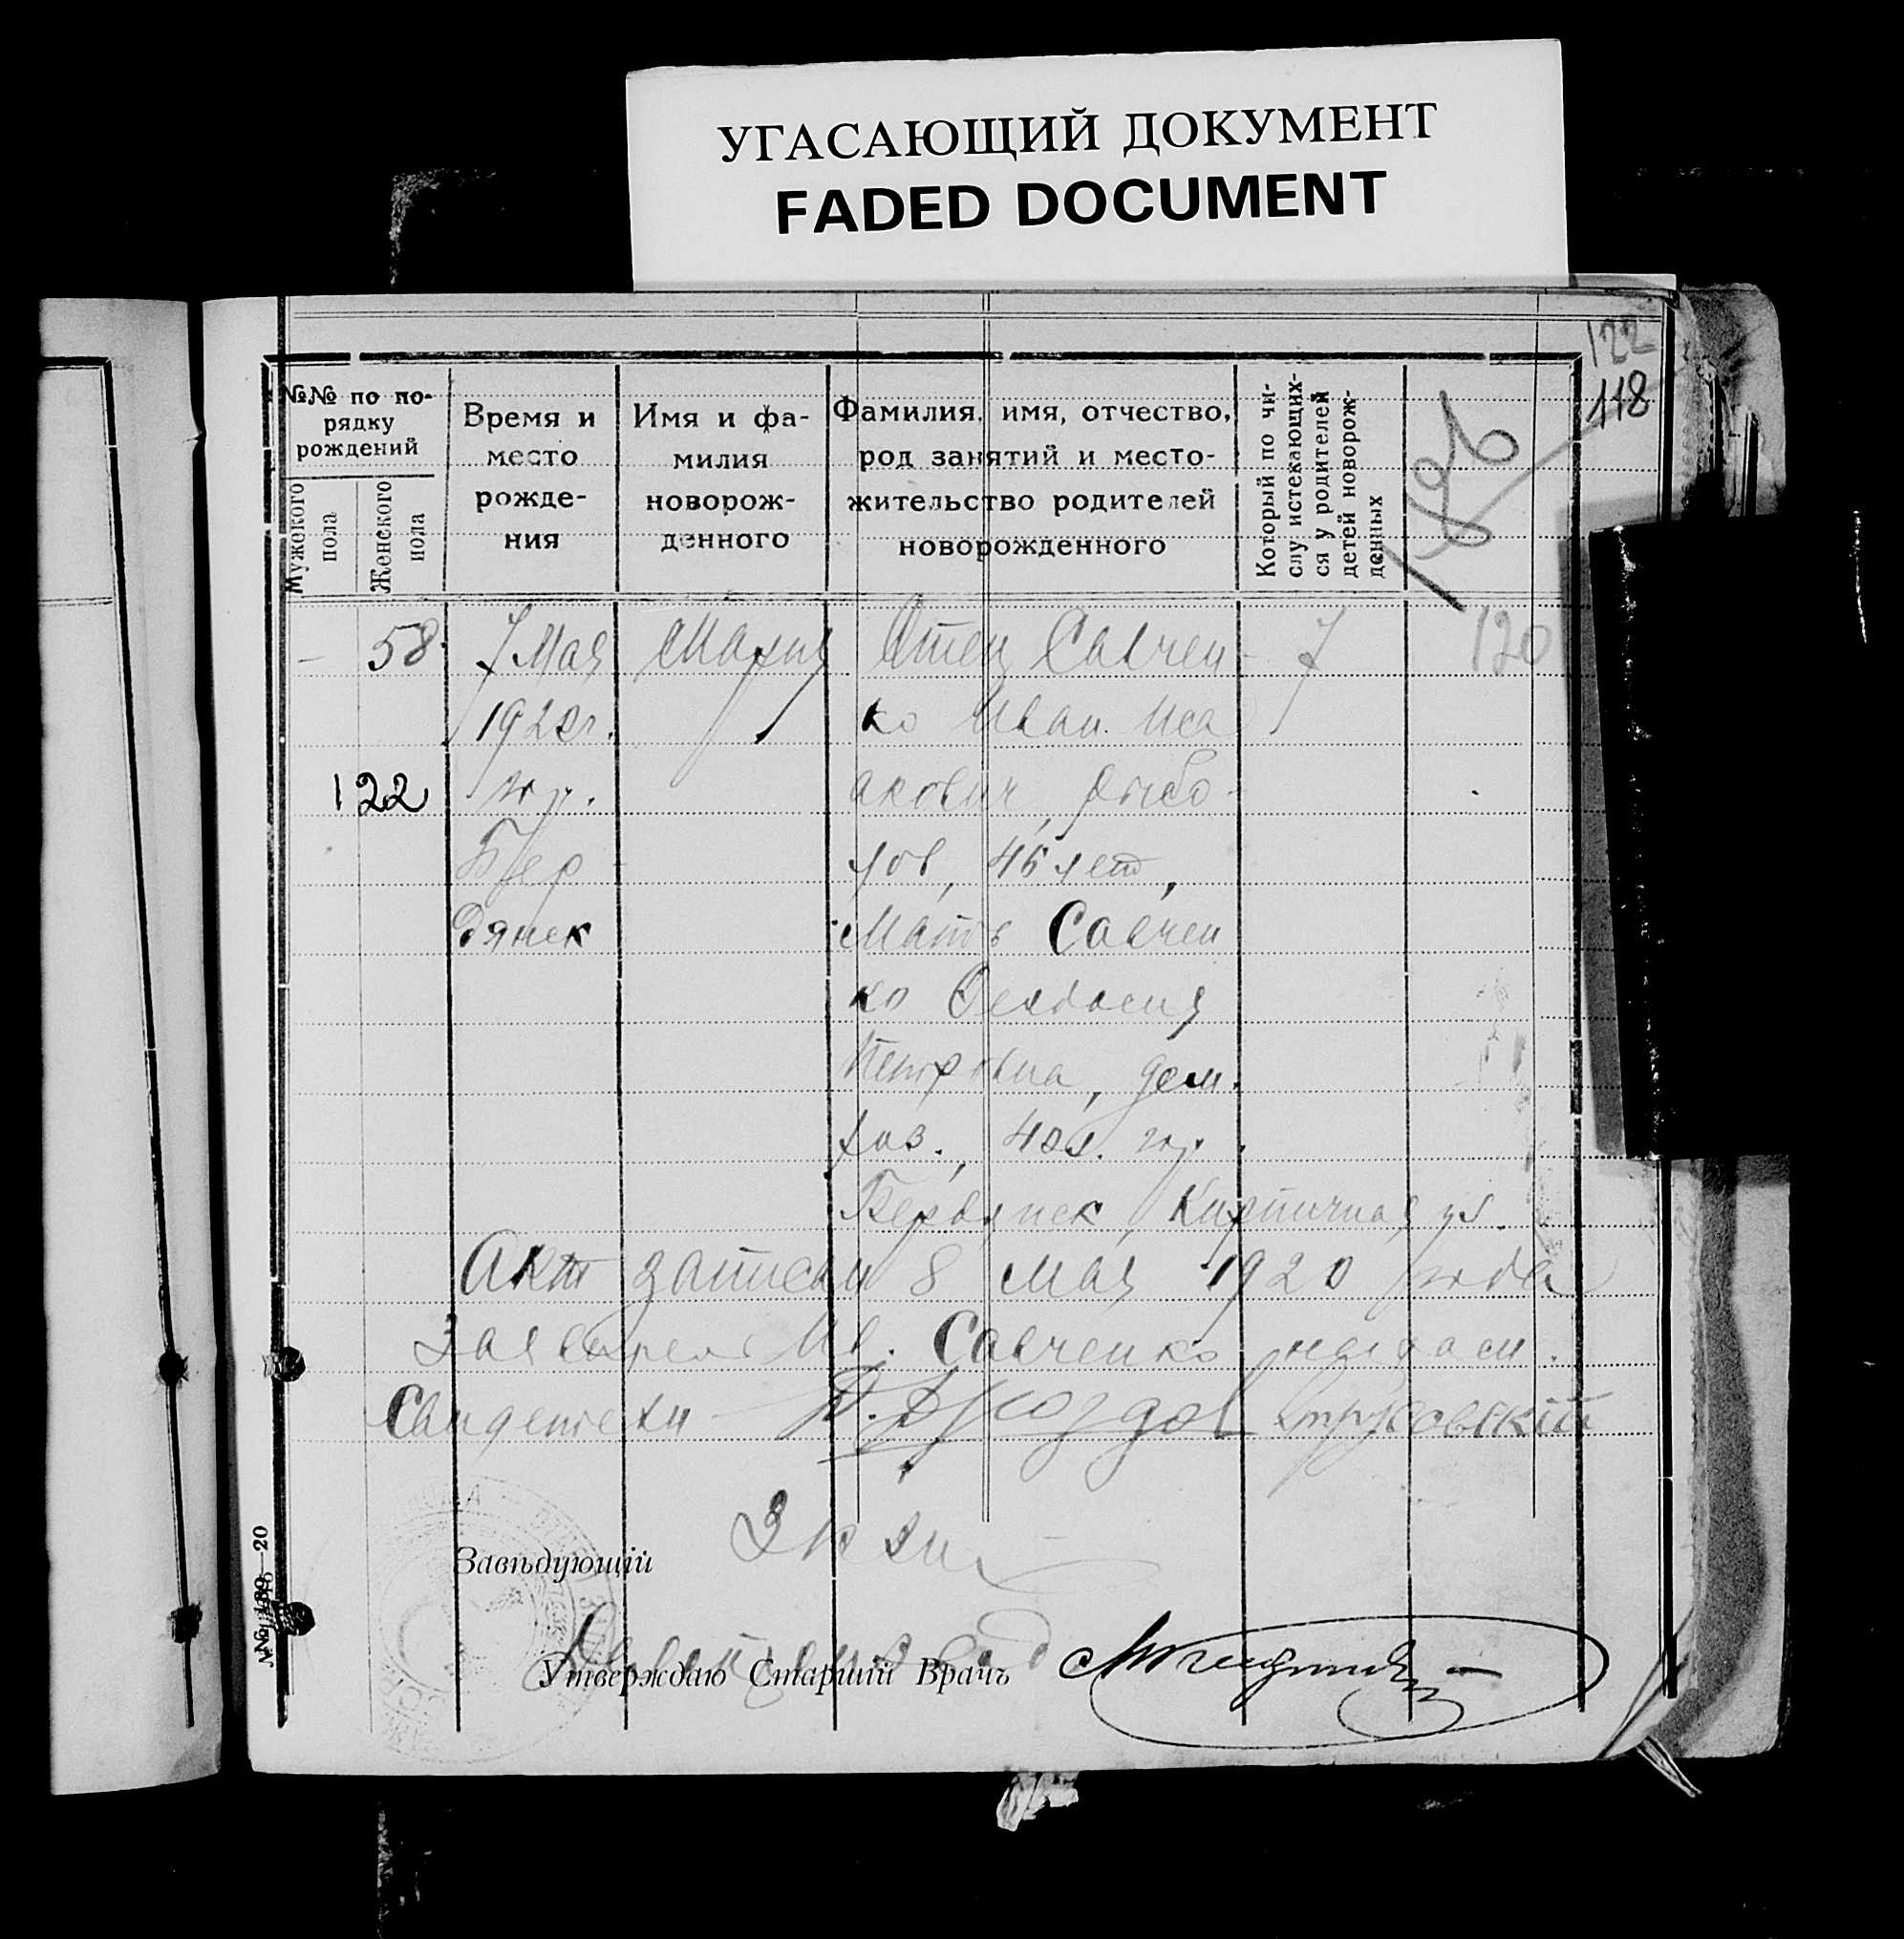 УГАСАЮЩИЙ ДОКУМЕНТ
FADED DOCUMENT
122
118
№№ по по-
рядку
рождений
Мужеского
пола
Женского
пола
Время и
место
рожде-
ния
Имя и фа-
милия
новорож-
денного
Фамилия, имя, отчество,
род занятий и место-
жительство родителей
новорожденного
Который по чи-
слу истекающих-
ся у родителей
детей новорож-
денных
– 58 7 Мая Мария Отец Савчен- 7 120
1920г. ко Иван Иса
122 гор. акович, рыбо-
Бер- лов, 46 лет,
дянск Мать Савчен
ко Феодосия
Петровна, дом.
хоз., 40 л. гор.
Бердянск, Кирпичная ул.
Акт записан 8 Мая 1920 года
Заявитель Ив. Савченко
Свидетели – Дроздов
Завѣдующій
Утверждаю Старшій Врачъ
20